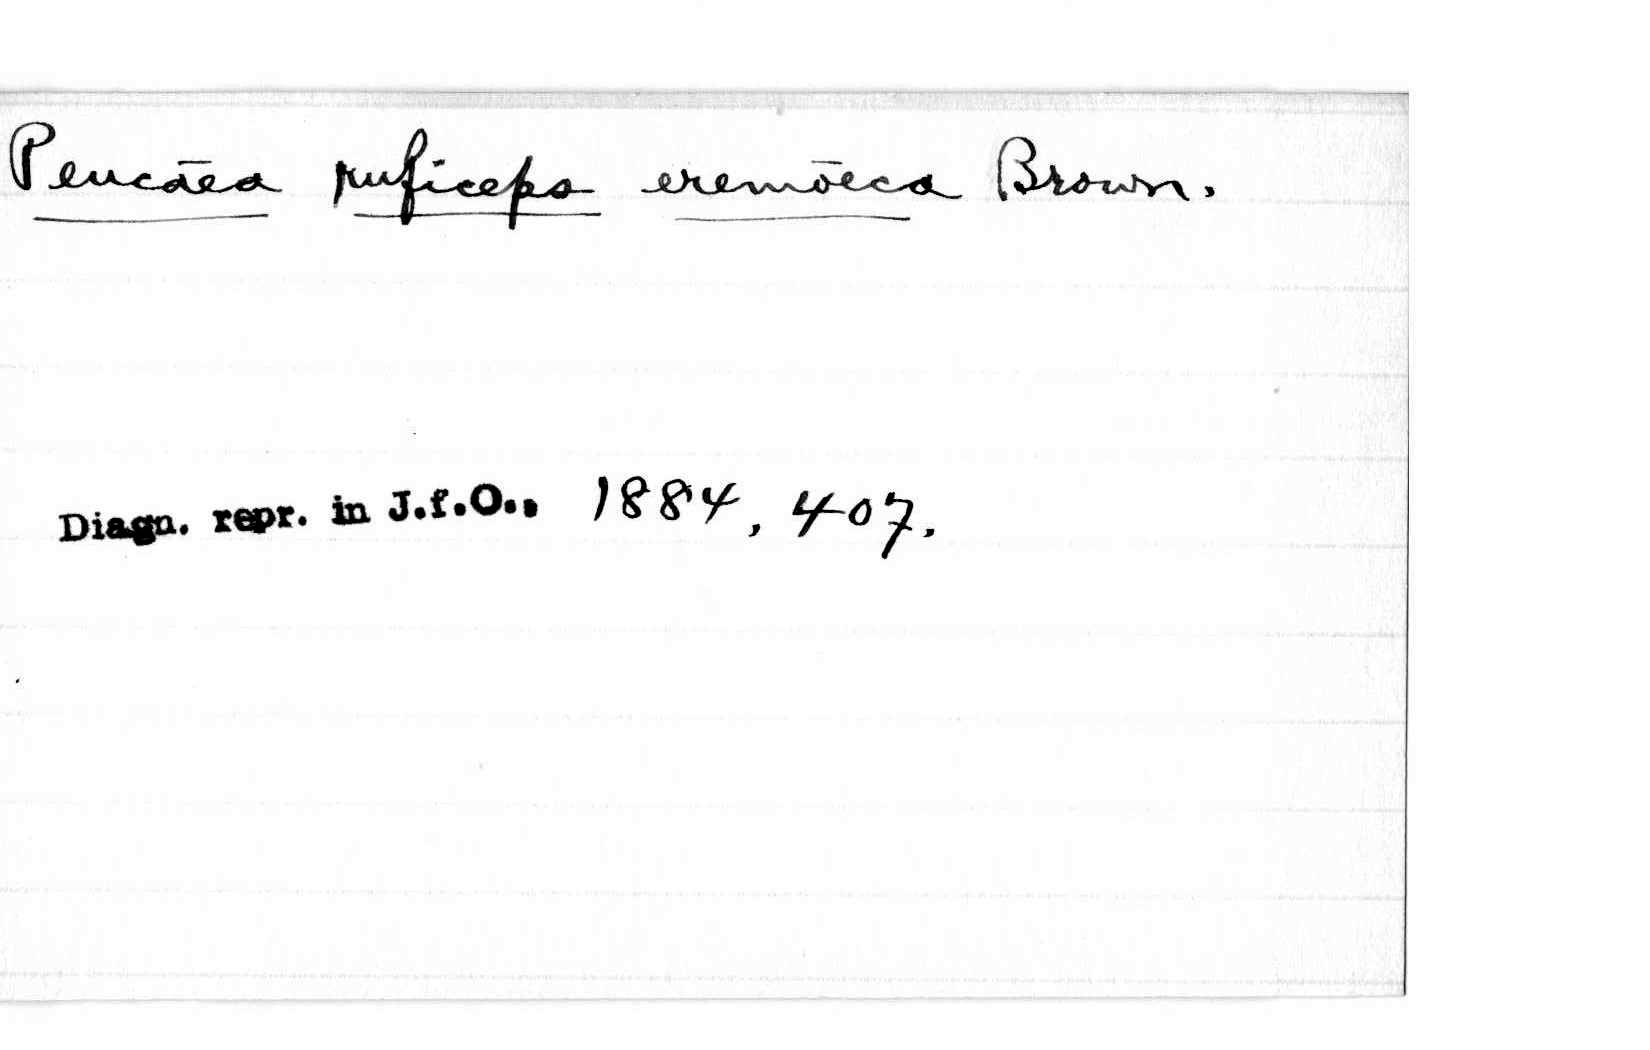 Peucāea ruficeps eremōeca Brown.
Diagn. repr. in J.f.O., 1884, 407.